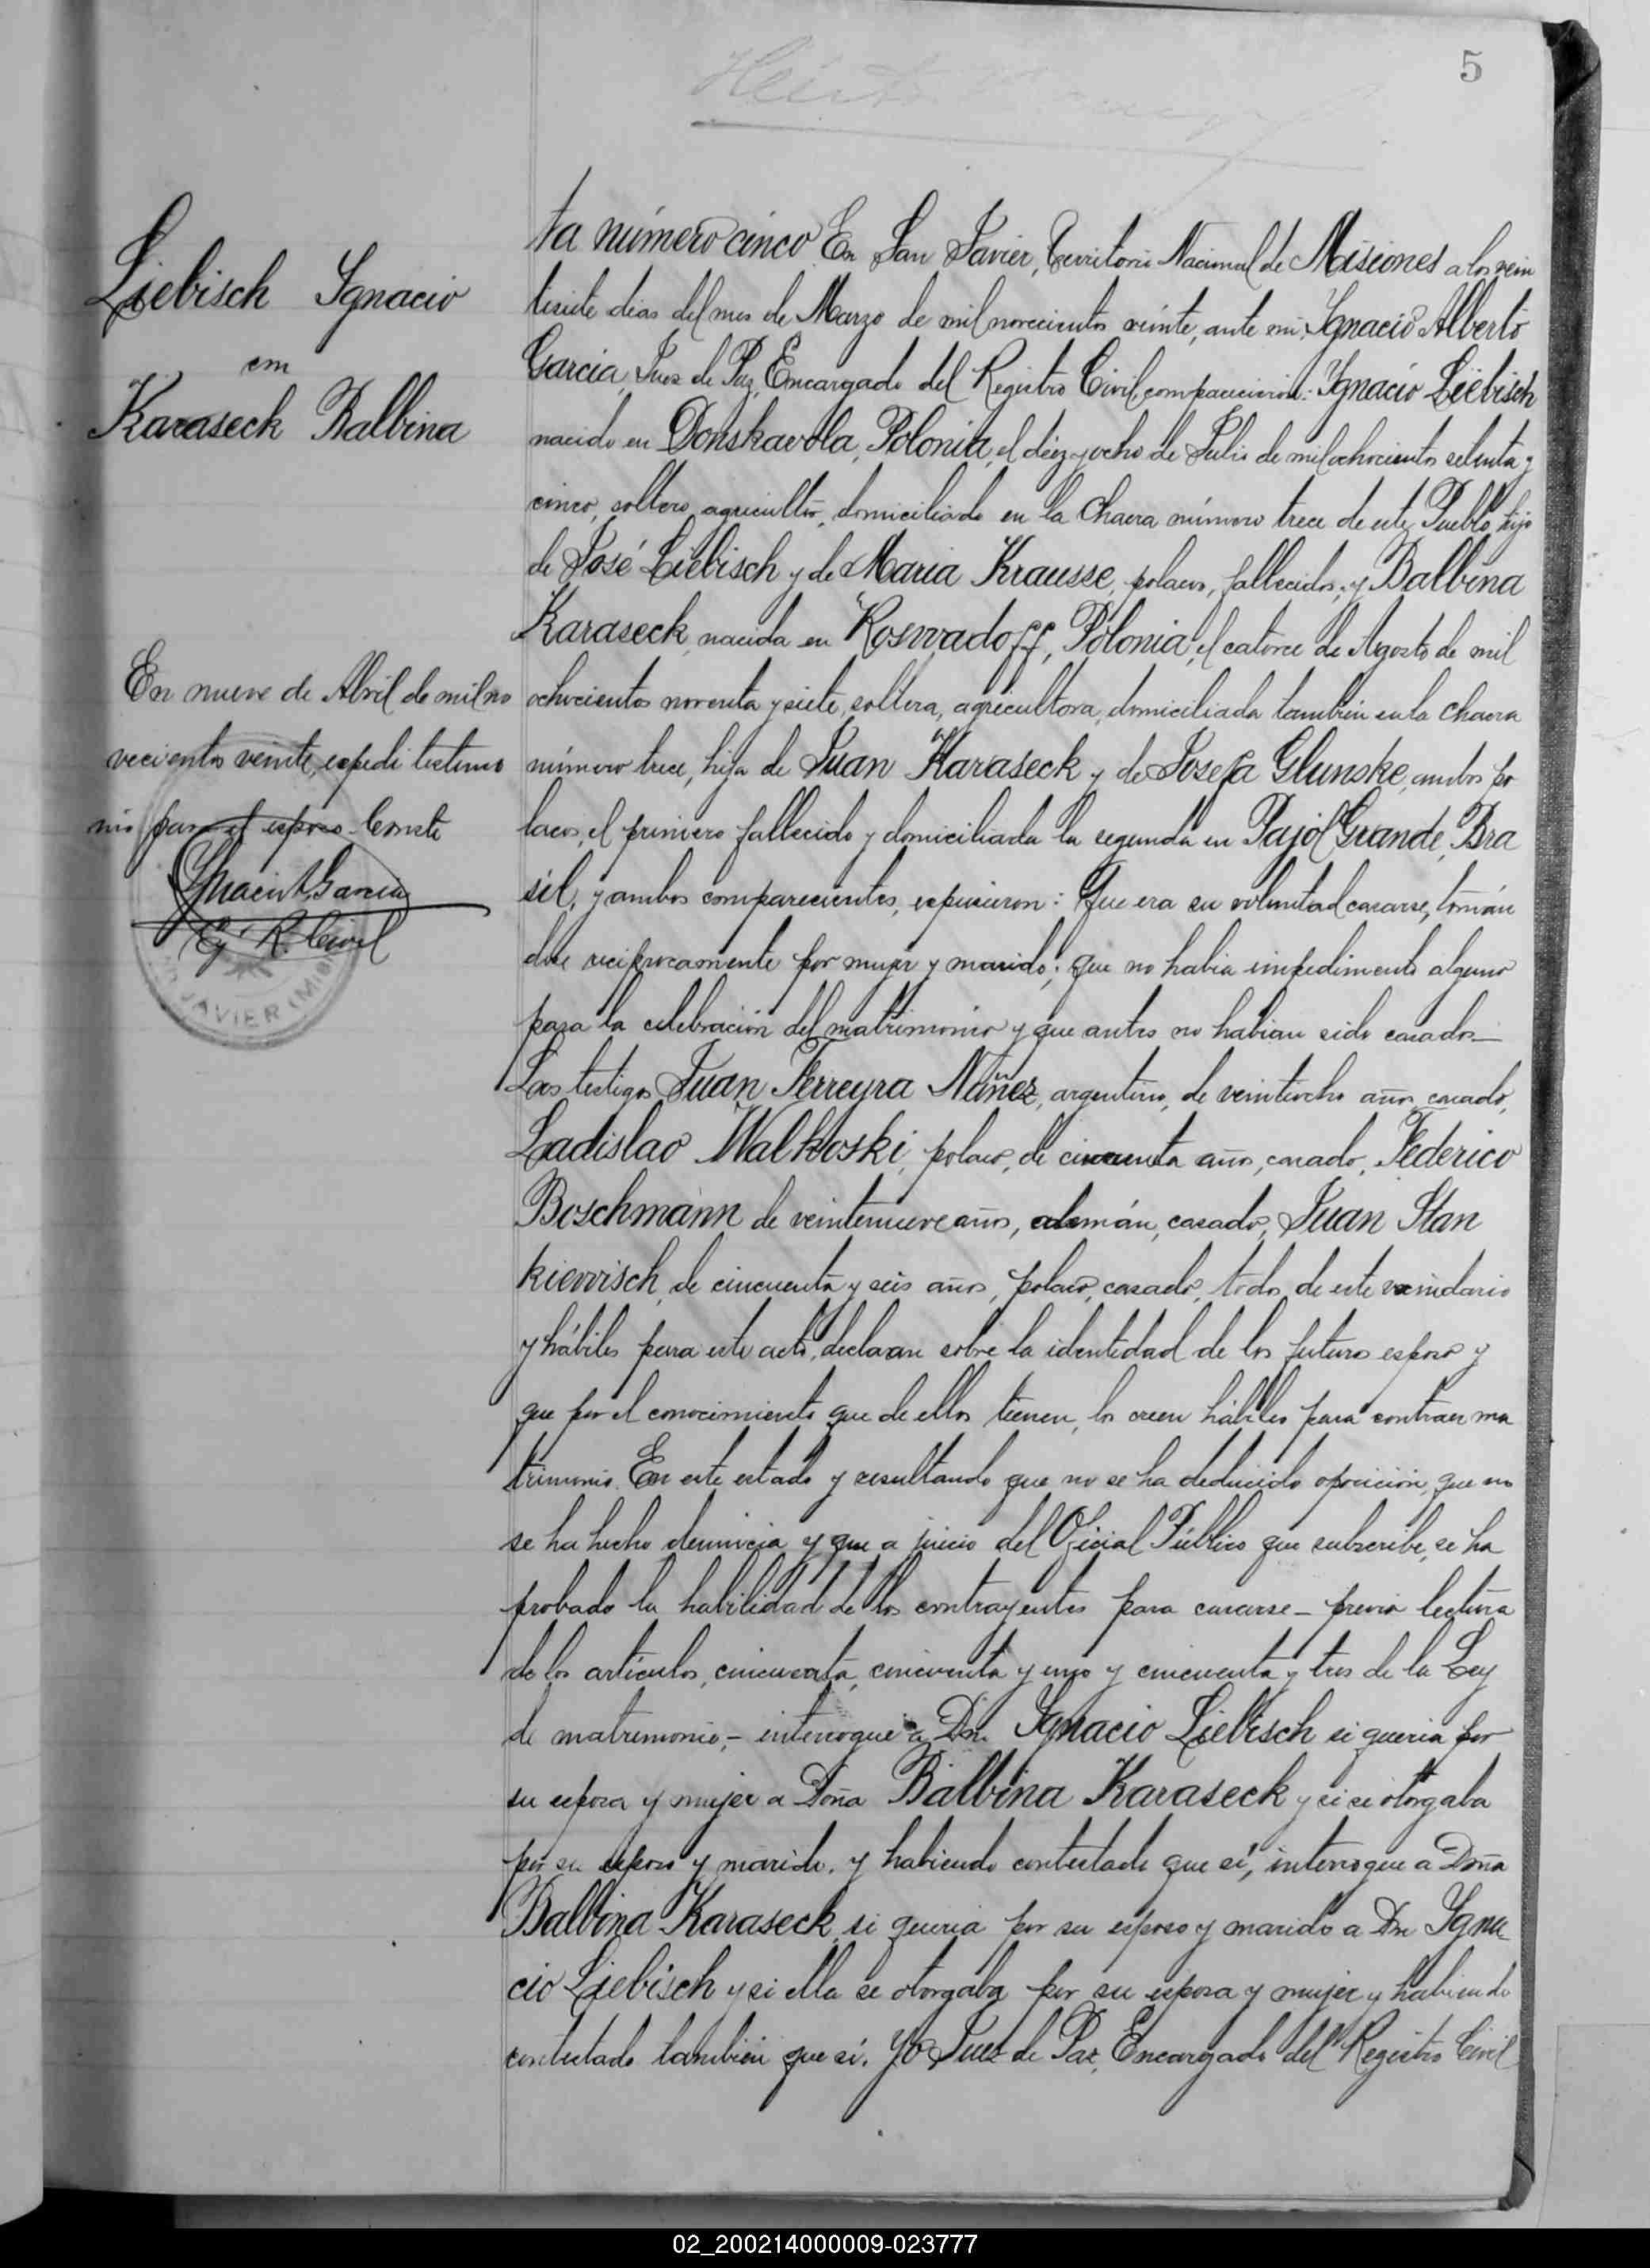 5
Liebisch Ygnacio
con
Karaseck Balbina
En nueve de Abril de mil no
vecientos veinte, expedi testimo
nio para el esposo. Conste
Ygnacio A. Garcia
Eg. R. Civil
JAVIER (MIS
ta número cinco En San Javier, Territorio Nacional de Misiones a los vein
tisiete dias del mes de Marzo de mil novecientos veinte, ante mi, Ygnacio Alberto
Garcia, Juez de Paz, Encargado del Registro Civil, comparecieron: Ygnacio Liebisch
nacido en Donskavola, Polonia, el diez y ocho de Julio de mil ochocientos setenta y
cinco, soltero, agricultor, domiciliado en la Chacra número trece de este Pueblo, hijo
de José Liebisch y de Maria Krausse, polacos, fallecidos; y Balbina
Karaseck, nacida en Roswadoff, Polonia, el catorce de Agosto de mil
ochocientos noventa y siete, soltera, agricultora, domiciliada tambien en la Chacra
número trece, hija de Juan Karaseck y de Josefa Glunske, ambos po
lacos, el primero fallecido y domiciliada la segunda en Pajol Grande, Bra
sil, y ambos comparecientes, expusieron: Que era su voluntad casarse, tomán
dose reciprocamente por mujer y marido; que no habia impedimento alguno
para la celebración del matrimonio y que antes no habian sido casados—
Los testigos Juan Ferreyra Nuñez, argentino, de veintiocho años, casado,
Ladislao Walkoski, polaco, de cincuenta años, casado, Federico
Boschmann de veintinueve años, alemán, casado, Juan Stan
kiewisch, de cincuenta y seis años, polaco, casado, todos de este vecindario
y hábiles para este acto, declaran sobre la identidad de los futuros esposos y
que por el conocimiento que de ellos tienen, los creen hábiles para contraer ma
trimonio. En este estado y resultando que no se ha deducido oposición, que no
se ha hecho denuncia y que a juicio del Oficial Público que subscribe, se ha
probado la habilidad de los contrayentes para casarse – previa lectura
de los artículos, cincuenta, cincuenta y uno y cincuenta y tres de la Ley
de matrimonio,– interrogue a Dn. Ygnacio Liebisch si queria por
su esposa y mujer a Doña Balbina Karaseck y si se otorgaba
por su esposo y marido. y habiendo contestado que sí, interrogue a Doña
Balbina Karaseck si queria por su esposo y marido a Dn Ygna–
cio Liebisch y si ella se otorgaba por su esposa y mujer y habiendo
contestado tambien que si. Yo Juez de Paz, Encargado del Registro Civil
02_200214000009-023777